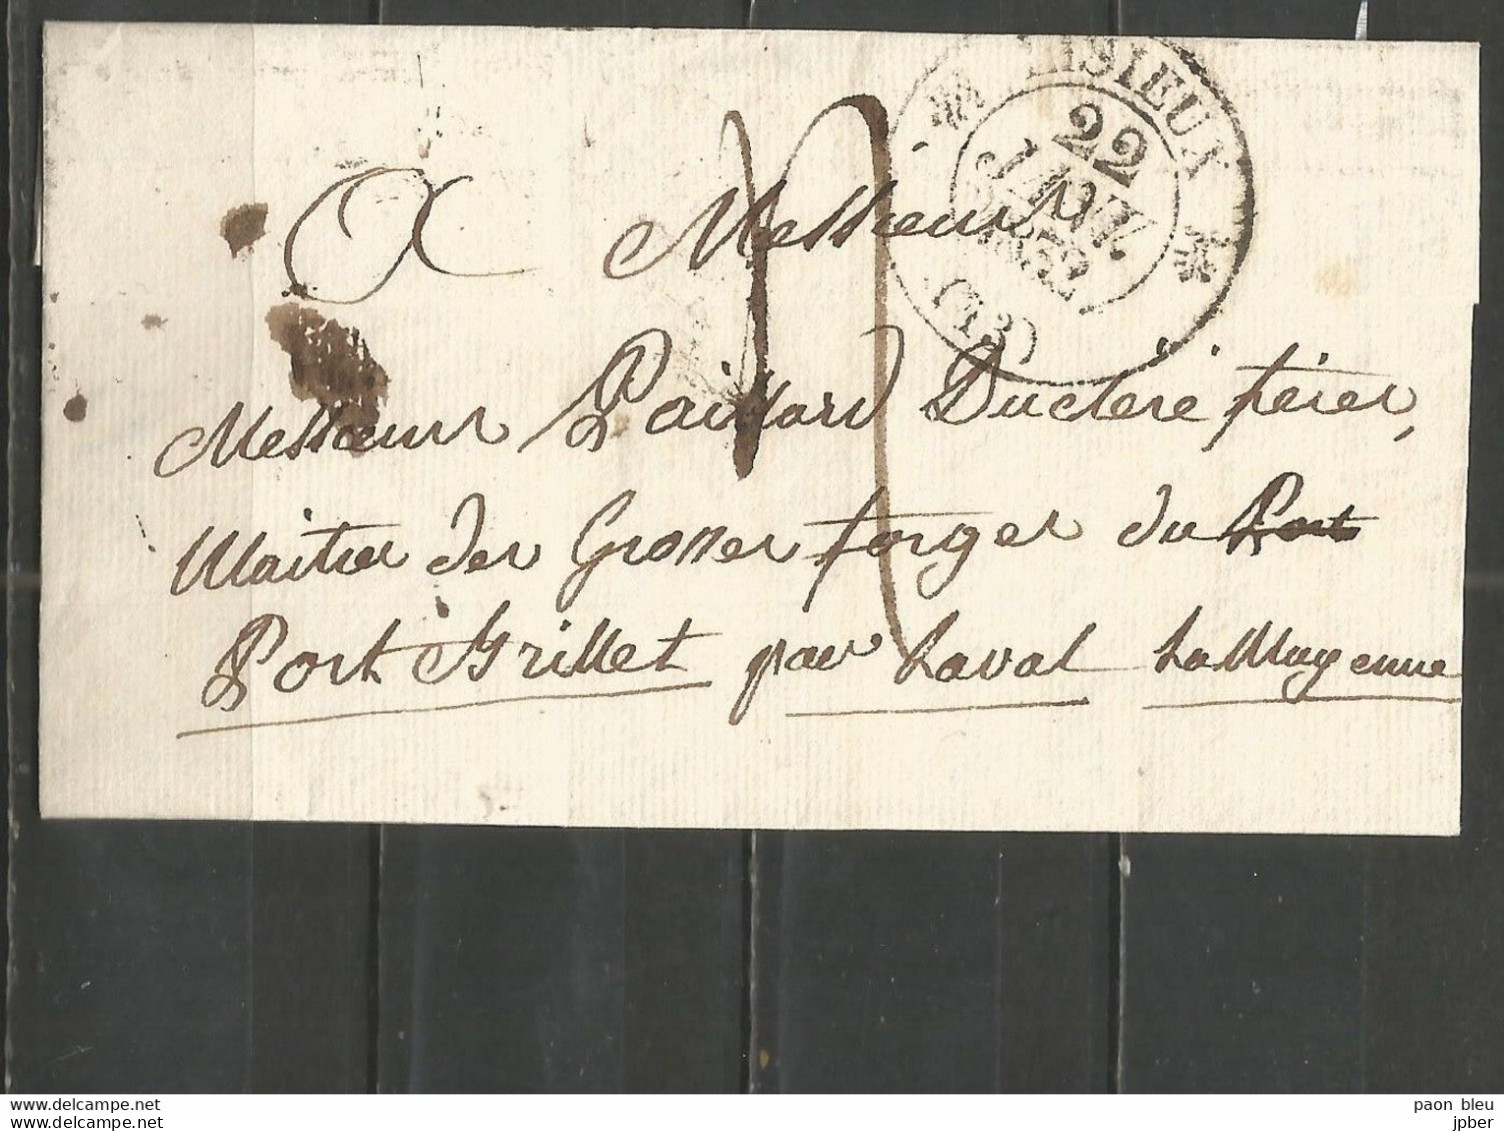 LISIEUX
22
JANV.
1832
(13)
A Messieurs
Messieurs Paillard Ducléré frères,
Maitres des Grosses forges du Port
Port Grillet par Laval La Mayenne
www.delcampe.net
www.delcampe.net
paon bleu
jpber